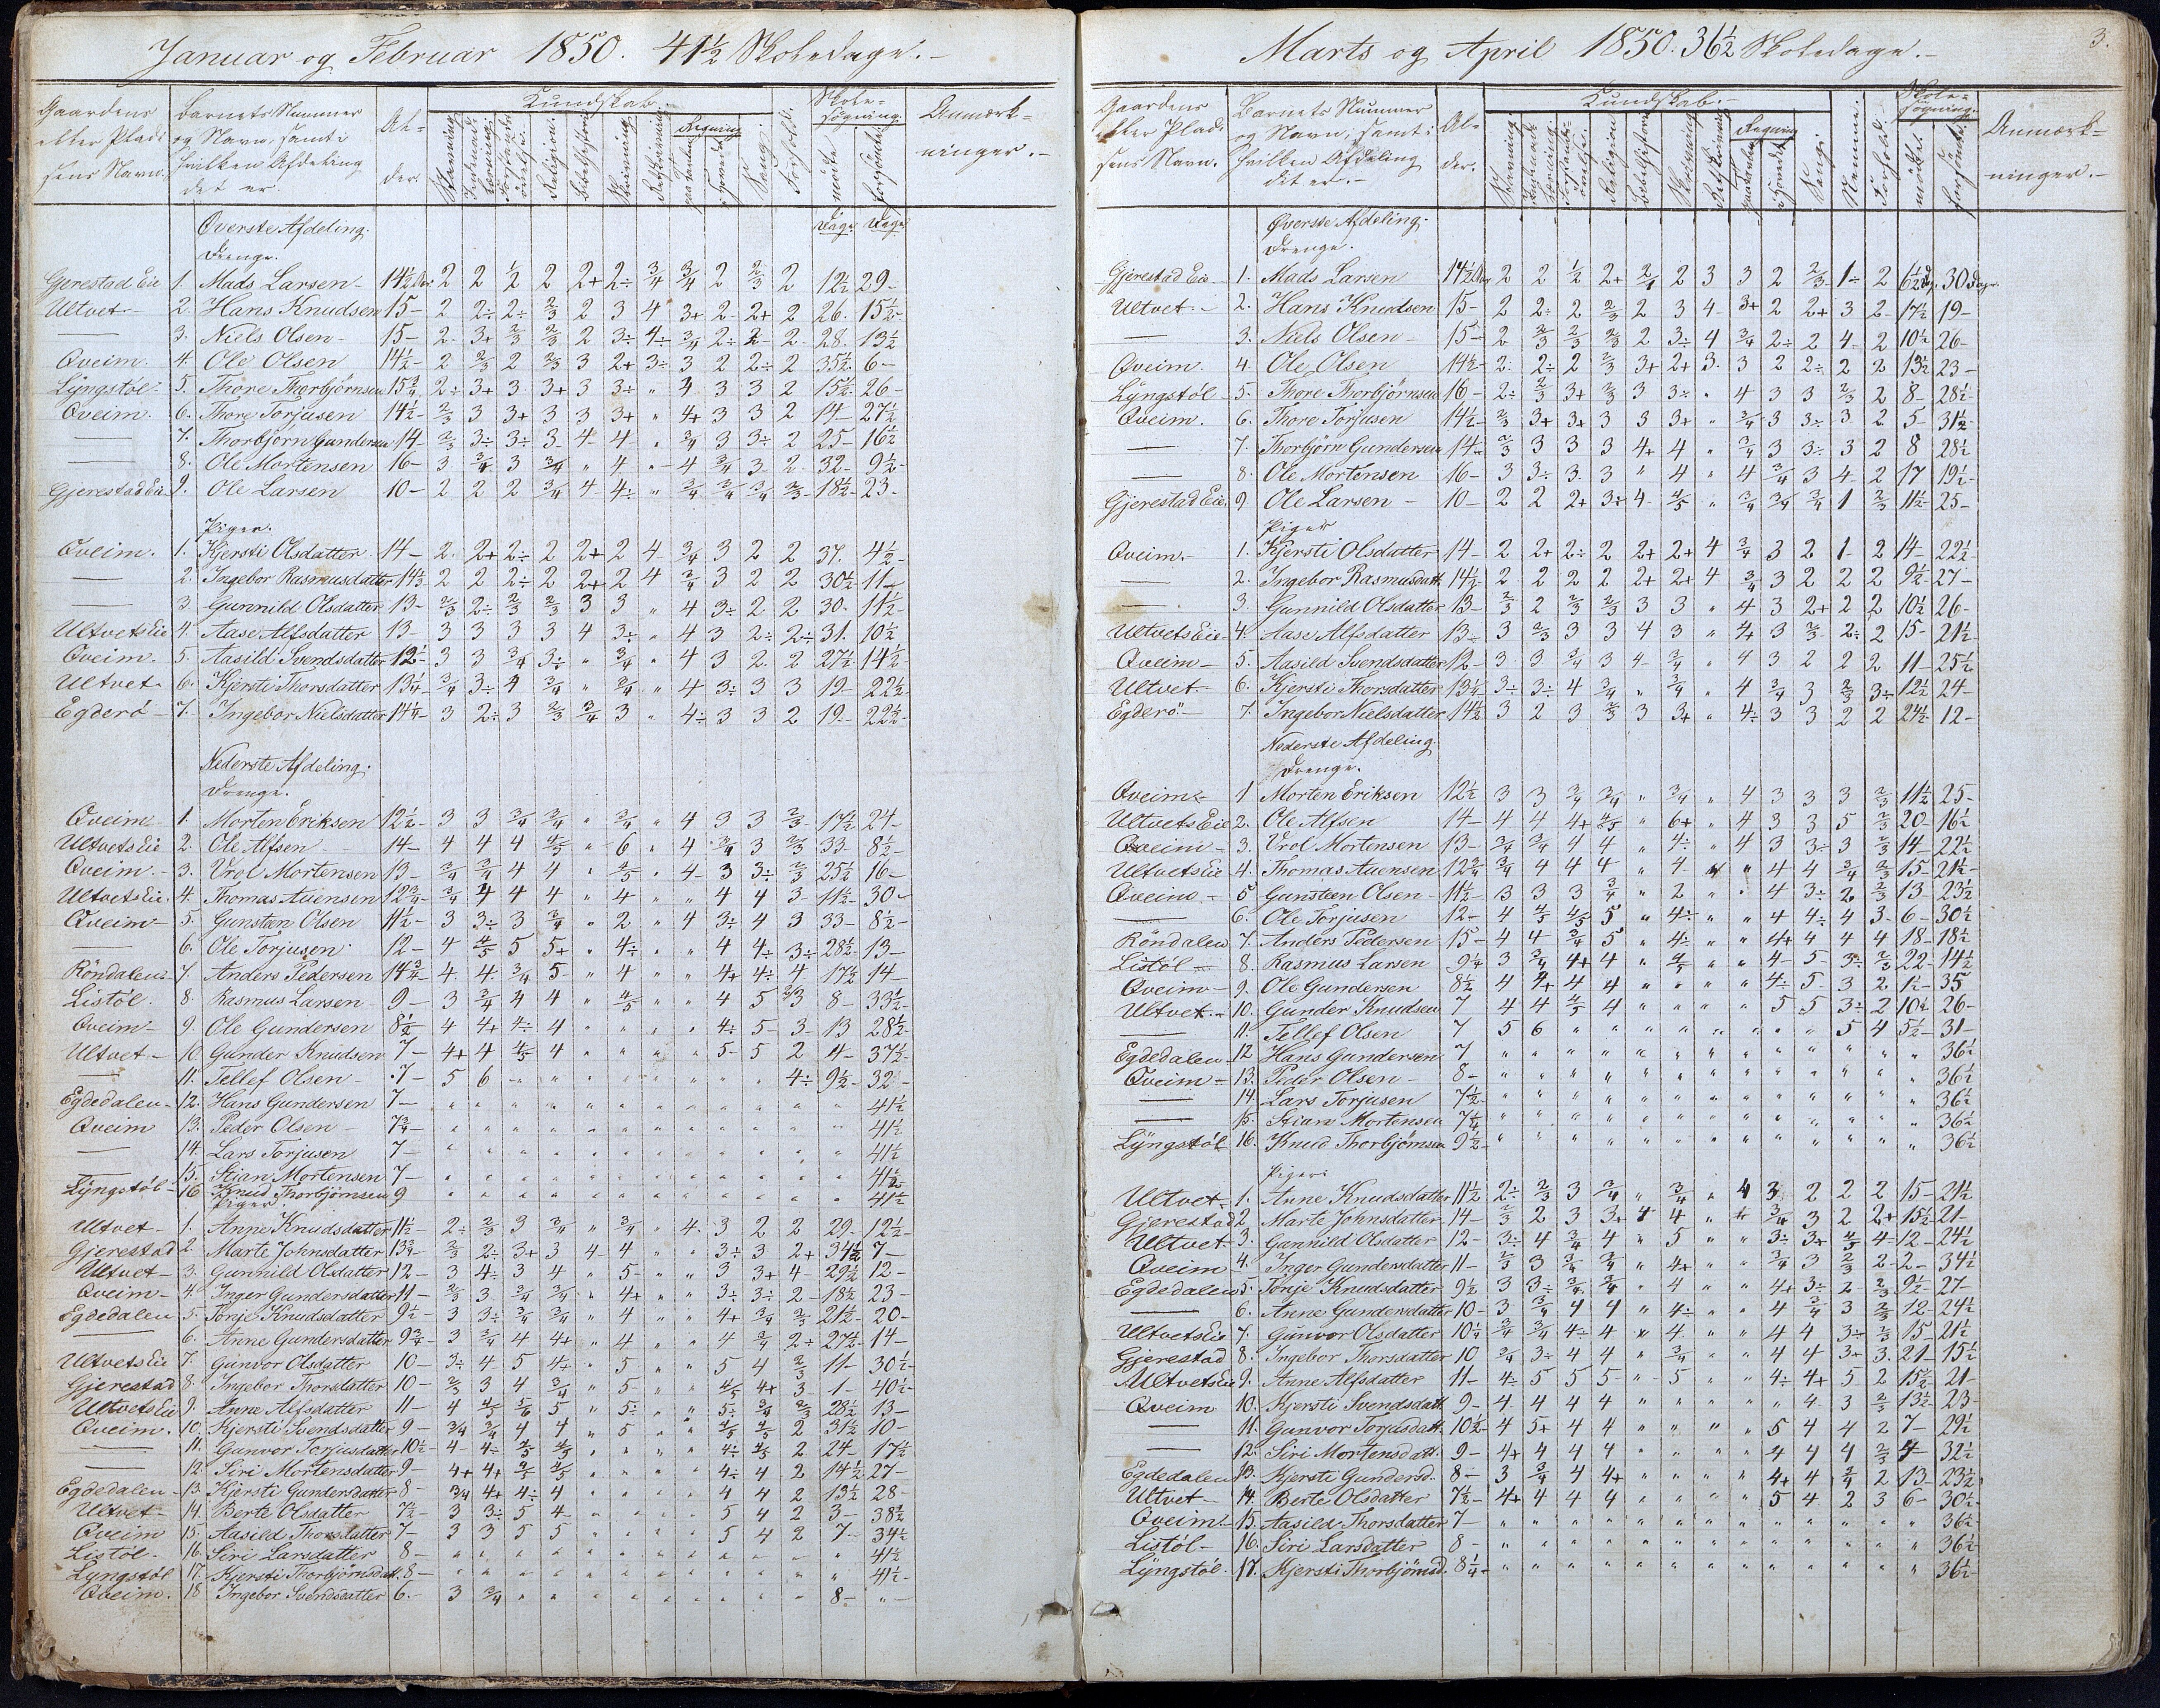 Januar og Februar 1850. 41½ Skoledage.-
Gaardens eller Pladsens Navn. | Barnets Nummer og Navn, samt i hvilken Afdeling det er. | Alder. | Kundskab. | Forhold. | Skolesøgning. mødte forsømte | Anmærkninger.-
Dage Dage
Øverste Afdeling.
Drenge.
Gjerestad Eie 1. Mads Larsen- 14½ 2 2 ½ 2 2+ 2÷ ¾ ¾ 2 ⅔ 2 12½ 29-
Ultvet- 2. Hans Knudsen 15- 2 2÷ 2÷ ⅔ 2 3 4 3+ 2 2+ 2 26. 15½-
— 3. Niels Olsen- 15- 2 3+ ⅔ ⅔ 2 3÷ 4÷ ¾ 2÷ 2 2 28. 13½
Qveim. 4. Ole Olsen 14½- 2 ⅔ 2 ⅔ 3 2+ 3÷ 3 2 2÷ 2 35½ 6-
Lÿngstøl- 5. Thore Thorbjörnsen 15¾ 2÷ 3+ 3 3+ 3 3÷ " 4 3 3 2 15½ 26-
Qveim. 6. Thore Torjusen 14½- ⅔ 3 3+ 3 3 3+ " 4+ 3 3 2 14- 27½
— 7. Thorbjörn Gundersen 14- ⅔ 3÷ 3÷ 3 4- 4- " ¾ 3 3÷ 2 25- 16½
— 8. Ole Mortensen 16- 3 ¾ 3 ¾ " 4 " 4 ¾ 3 2 32- 9½-
Gjerestad Eie 9. Ole Larsen 10- 2 2 2 ¾ 4 4÷ " ¾ ¾ ¾ ⅔ 18½- 23-
Piger.
Qveim. 1. Kjersti Olsdatter 14- 2 2+ 2÷ 2 2+ 2 4 ¾ 3 2 2 37. 4½-
— 2. Ingebor Rasmusdatter 14⅓ 2 2 2÷ 2 2+ 2 4 ¾ 3 2 2 30½ 11-
— 3. Gunnild Olsdatter 13- ⅔ 2÷ ⅔ ⅔ 3 3 " 4 3÷ 2 2 30- 11½-
Ultvets Eie 4. Aase Alfsdatter 13- 3 3 3 3 4 3÷ " 4 3 2÷ 2÷ 31. 10½
Qveim. 5. Aasild Svendsdatter 12- 3 3 ¾ 3÷ " ¾ " 4 3 2 2 27½ 14½
Ultvet- 6. Kjersti Thorsdatter 13¼- ¾ 3÷ 4 ¾ " ¾ " 4 3÷ 3 3 19- 22½
Egderö- 7. Ingebor Nielsdatter 14¼- 3 2÷ 3 ⅔ ¾ 3 " 4÷ 3 3 2 19- 22½
Nederste Afdeling.
Drenge.
Qveim- 1. Morten Eriksen 12½- 3 3 ¾ ¾ " ¾ " 4 3 3 ⅔ 17½ 24-
Ultvets Eie 2. Ole Alfsen 14- 4 4 4 ⅘ " 6 " 4 ¾ 3 ⅔ 33- 8½-
Qveim.- 3. Vrol Mortensen 13- ¾ ¾ 4 4 " ⅘ " 4 3 3÷ ⅔ 25½ 16-
Ultvets Eie. 4. Thomas Auensen 12¾- ¾ 4 4 4 " 4 " " 4 4 3 11½- 30-
Qveim- 5. Gunsteen Olsen 11½- 3 3÷ 3 ¾ " 2 " 4 3÷ 4 3 33- 8½-
— 6. Ole Torjusen 12- 4 ⅘ 5 5+ " 4÷ " " 4 4÷ 3÷ 28½ 13-
Röndalen- 7. Anders Pedersen 14¾- 4 4 ¾ 5- " 4 " " 4+ 4÷ 4 17½ 14-
Listöl. 8. Rasmus Larsen- 9- 3 ¾ 4 4 " ⅘ " " 4 5 2/3 8- 33½
Qveim- 9. Ole Gundersen 8½ 4 4+ 4÷ 4 " " " " 4÷ 5- 3 13 28½
Ultvet- 10. Gunder Knudsen 7- 4+ 4 ⅘ 4 " " " " 5- 5 2 4- 37½
— 11. Tellef Olsen- 7- 5 6 " " " " " " " " 4÷ 9½ 32-
Egdedalen- 12. Hans Gundersen 7- " " " " " " " " " " " " 41½
Qveim 13. Peder Olsen- 7¾- " " " " " " " " " " " " 41½
— 14. Lars Torjusen 7- " " " " " " " " " " " " 41½
— 15. Stian Mortensen 7- " " " " " " " " " " " " 41½
Lÿngstøl- 16 Knud Thorbjörnsen 9 " " " " " " " " " " " " 41½
Piger.
Ultvet- 1. Anne Knudsdatter 11½- 2÷ ⅔ 3 ¾ " ¾ " 4 3 2 2 29- 12½-
Gjerestad 2. Marte Johnsdatter 13¾- ⅔ 2÷ 3+ 3 4- 4 " " 3÷ 3 2+ 34½ 7-
Ultvet- 3. Gunnild Olsdatter 12- 3 4÷ 3 4 " 5- " " 3 3+ 4- 29½ 12-
Qveim- 4. Inger Gundersdatter 11- ⅔ 3 ¾ ¾ " 4+ " " 3÷ 3÷ 2- 18½ 23-
Egdedalen 5. Torje Knudsdatter 9½- 3 3÷ ¾ ¾ " 4 " " 4+ ¾ ⅔ 21½- 20-
— 6. Anne Gundersdatter 9¾- 3 ¾ 4 4+ " 4 " " 4 ¾ 2÷ 27½ 14-
Ultvets Eie 7. Gunvor Olsdatter 10- 3÷ 4 5 4+ " 5 " " 5 4 ⅔ 11- 30½-
Gjerestad 8. Ingebor Thorsdatter 10- ⅔ 3 4 ¾ " 5- " " ⅘ 4+ 3- 1- 40½-
Ultvets Eie 9. Anne Alfsdatter 11- 4 ⅘ ⅚ 5 " 5÷ " " 5÷ ¾ ⅔ 28½ 13-
Qveim. 10. Kjersti Svendsdatter 9- 3/4 ¾ 4 4 " 5 " " ⅘ ⅘ 2 31½ 10-
— 11. Gunvor Torjusdatter 10½- 4 4÷ ⅘ ⅘ " " " " 4÷ ⅘ 2 24- 17½
— 12. Siri Mortensdatter 9- 4+ 4+ ⅘ ⅘ " " " " 4÷ 4 2 14½ 27-
Egdedalen- 13. Kjersti Gundersdatter 8- 3/4 4+ 4÷ 4 " " " " 4 4 2 13½ 28-
Ultvet- 14. Berte Olsdatter 7½- 3 3÷ 5 4 " " " " 5 4 2 3- 38½
Qveim 15. Aasild Thorsdatter 7- 3 3 5 5 " " " " 5 4 2 7- 34½
Listöl- 16. Siri Larsdatter 8- " " " " " " " " " " " " 41½
Lyngstøl 17. Kjersti Thorbjörnsdatt. 8- " " " " " " " " " " " " 41½-
Qveim. 18 Ingebor Svendsdatter 6.- 3 ¾ " " " " " " " " " 8- "-
3.
Marts og April 1850. 36½ Skoledage.-
Gaardens eller Pladsens Navn. | Barnets Nummer og Navn, samt i hvilken Afdeling det er.- | Alder. | Kundskab.- | Nemme. | Forhold. | Skolesøgning. mødte forsømte | Anmærkninger.-
Øverste Afdeling.
Drenge.
Gjerestad Eie- 1. Mads Larsen 14½ 2 2 ½ 2+ 2 3 3 2 ⅔ 1÷ 2 6½ Dg. 30 Dage.
Ultvet.- 2. Hans Knudsen 15- 2 2÷ 2 ⅔ 2 3 4 3+ 2 2+ 3 2 17½- 19-
— 3. Niels Olsen- 15- 2 ⅔ ⅔ ⅔ 2 3÷ 4 ¾ 2÷ 2 4 2 10½ 26-
Qveim. 4. Ole Olsen 14½- 2 2÷ 2 ⅔ 3+ 2+ 3 3 2 2÷ 2 2 13½ 23-
Lÿngstöl- 5. Thore Thorbjörnsen 16- 2÷ ⅔ 3+ ⅔ 3 3÷ " 4 3 3 ⅔ 2 8- 28½
Qveim. 6. Thore Torjusen 14½- ⅔ 3+ 3+ 3 3 3+ " ¾ 3 3÷ 3 2 5- 31½-
— 7. Thorbjörn Gundersen 14- ⅔ 3 3 3 4+ 4 " ¾ 3 3÷ 3 2 8 28½
— 8. Ole Mortensen 16- 3 3÷ 3 3 " 4 " 4 ¾ 3 4 2 17 19½-
Gjerestad Eie. 9 Ole Larsen- 10- 2 2 2+ 3÷ 4 ⅘ " ¾ ¾ ¾ 1 ⅔ 11½- 25-
Piger
Qveim.- 1. Kjersti Olsdatter 14- 2 2+ 2÷ 2 2+ 2+ 4 ¾ 3 2 1- 2 14- 22½
— 2. Ingebor Rasmusdatt. 14½- 2 2 2 2 2+ 2+ 4 ¾ 3 2 2 2 9½- 27-
— 3. Gunnild Olsdatter 13- ⅔ 2 ⅔ ⅔ 3 3 " 4 3 2+ 2 2 10½ 26-
Ultvets Eie- 4. Aase Alfsdatter 13- 3 ⅔ 3 3 4 3 " 4+ 3 ⅔ 2÷ 2 15- 21½
Qveim- 5. Aasild Svendsdatter 12- 3 3 ¾ 3 4 ¾ " 4 3 2 2 2 11- 25½
Ultvet.- 6. Kjersti Thorsdatter 13¼ 3÷ 3÷ 4 ¾ " ¾ " 4 ¾ 3 ⅔ 3÷ 12½ 24-
Egderö.- 7. Ingebor Nielsdatter 14½ 3 2 3 ⅔ 3 3+ " 4÷ 3 3 2 2 24½- 12-
Nederste Afdeling.
Drenge.
Qveim.- 1 Morten Eriksen 12½ 3 3 ¾ ¾ " ¾ " 4 3 3 3 ⅔ 11½ 25-
Ultvets Eie 2. Ole Alfsen 14- 4 4 4+ ⅘ " 6+ " 4 3 3 5 ⅔ 20- 16½
Qveim- 3. Vrol Mortensen 13- ¾ ¾ 4 4 " 4÷ " 4 3 3÷ 3 ⅔ 14- 22½
Ultvets Eie 4. Thomas Auensen 12¾ ¾ 4 4 4 " 4 " " 4 4 ¾ ⅔ 15- 21½-
Qveim.- 5 Gunsteen Olsen- 11½- 3 3 3 ¾ " 2 " " 4 3÷ 2 ⅔ 13- 23½
— 6. Ole Torjusen 12- 4 ⅘ ⅘ 5 " 4÷ " " 4 4÷ 4 3- 6- 30½
Röndalen 7. Anders Pedersen 15- 4 4 ¾ 5 " 4÷ " " 4+ 4 4 4 18- 18½
Listöl- 8. Rasmus Larsen 9¼ 3 ¾ 4+ 4 " ⅘ " " 4- 5- 3÷ ⅔ 22- 14½
Qveim- 9. Ole Gundersen 8½ 4 4+ 4 4 " " " " 4÷ 5- 3 2 1½- 35
Ultvet.- 10. Gunder Knudsen 7 4 4 ⅘ 4 " " " " 5 5 3÷ 2 10½ 26-
— 11. Tellef Olsen 7 5 6 " " " " " " " " 5 4 5½- 31-
Egdedalen- 12. Hans Gundersen 7 " " " " " " " " " " " " " 36½
Qveim- 13. Peder Olsen- 8- " " " " " " " " " " " " " 36½
— 14. Lars Torjusen 7½- " " " " " " " " " " " " " 36½
— 15. Stian Mortensen 7¼ " " " " " " " " " " " " " 36½
Lÿngstöl 16. Knud Thorbjörnsen 9½- " " " " " " " " " " " " " 36½
Piger.
Ultvet.- 1. Anne Knudsdatter 11½ 2÷ ⅔ 3 ¾ " ¾ " 4 3 2 2 2 15- 21½
Gjerestad 2 Marte Johnsdatter 14- ⅔ 2 3 3+ 4 4 " ¾ 3 2 2+ 15½ 21-
Ultvet- 3. Gunnild Olsdatter 12- 3÷ 4 ¾ 4 " 5 " " 3÷ 3+ ⅘ 4- 12- 24½
Qveim 4. Inger Gundersdatter 11- ⅔ 3 ¾ ¾ " 4+ " " ¾ 3 ⅔ 2 2- 34½
Egdedalen 5. Torje Knudsdatter 9½ 3 3÷ ¾ ¾ " 4 " " 4+ 3÷ 2 ⅔ 9½- 27-
— 6. Anne Gundersdatter 10- 3 ¾ 4 4 " 4÷ " " 4 ¾ 3 ⅔ 12 24½
Ultvets Eie 7. Gunvor Olsdatter 10¼ ¾ ¾ 4÷ 4 " 4 " " 4 4 3÷ ⅔ 15- 21½
Gjerestad 8. Ingebor Thorsdatter 10 ¾ 3÷ 4 4 " ¾ " " 4 4 3+ 3. 21- 15½
Ultvets Eie 9. Anne Alfsdatter 11- 4÷ 5 5 5- " 5 " " 4÷ 4+ 5 2 15½ 21-
Qveim 10. Kjersti Svendsdatt. 9- 4 4 4 4 " " " " " 4 3 ⅔ 13½ 23-
— 11. Gunvor Torjusdatt. 10½- 4 5+ 4 4 " " " " 5 4 4 2 7- 29½
— 12. Siri Mortensdatt. 9- 4+ 4 4 4 " " " " 4 4 4 ⅔ 4- 32½
Egdedalen 13. Kjersti Gundersd. 8- 3 ¾ 4 4+ " " " " 4+ 4 2 13- 23½
Ultvet- 14. Berte Olsdatter 7½- 4+ 4 4 4 " " " " 5 4 2 3 6- 30½
Qveim.- 15. Aasild Thorsdatter 7- " " " " " " " " " " " " " 36½
Listöl- 16. Siri Larsdatter 8- " " " " " " " " " " " " " 36½
Lÿngstöl. 17. Kjersti Thorbjörnsd. 8¼- " " " " " " " " " " " " " 36½